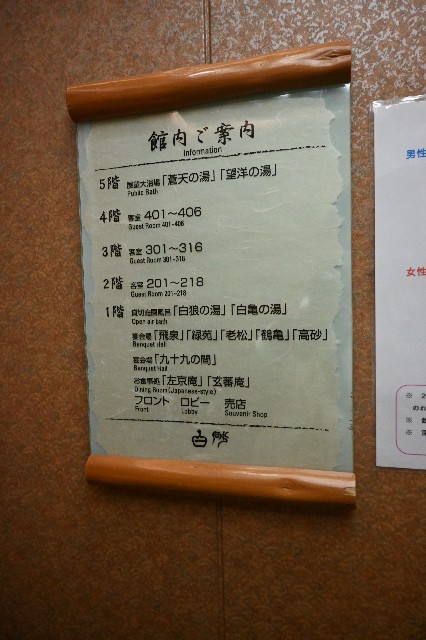 館内ご案内
Information
5階 展望大浴場「蒼天の湯」「望洋の湯」
Public Bath
4階 客室 401～406
Guest Room 401-406
3階 客室 301～316
Guest Room 301-316
2階 客室 201～218
Guest Room 201-218
1階 貸切庭園風呂「白狼の湯」「白亀の湯」
Open air bath
宴会場「飛泉」「緑苑」「老松」「鶴亀」「高砂」
Banquet Hall
宴会場「九十九の間」
Banquet Hall
お食事処「左京庵」「玄蕃庵」
Dining Room(Japanese-style)
フロント ロビー 売店
Front Lobby Souvenir Shop
男性
女性
※ 2
のれ
※
※